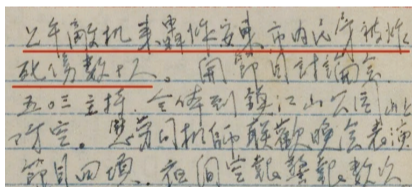 上午敵机来轰炸安東市内民房被炸
死傷数十人。開節目討論会
五〇三主持。全体到鎮江山公园山上
防空。慰劳司机師联歡晚会表演
節目四項。夜间空襲警報数次